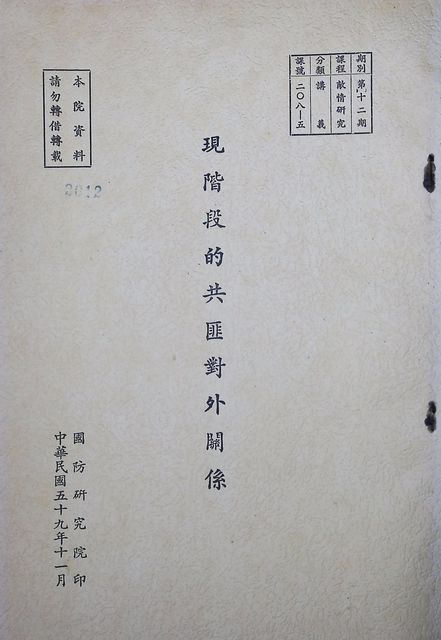 期別 第十二期
課程 敵情研究
分類 講義
課號 二〇八—五
現階段的共匪對外關係
本院資料
請勿轉借轉載
2012
國防研究院印
中華民國五十九年十一月